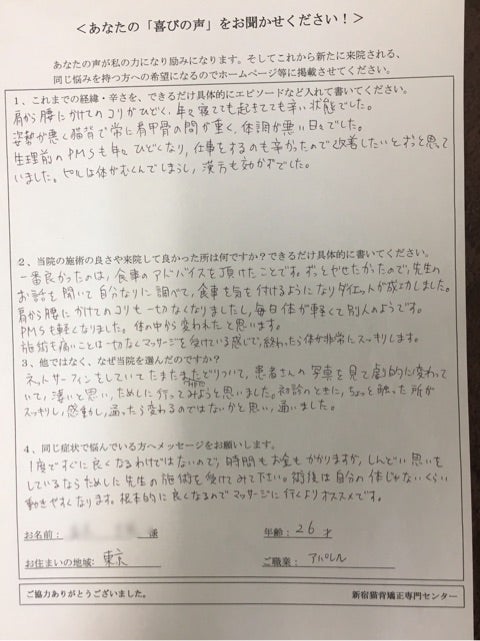 ＜あなたの「喜びの声」をお聞かせください！＞
あなたの声が私の力になり励みになります。そしてこれから新たに来院される、
同じ悩みを持つ方への希望になるのでホームページ等に掲載させてください。
1、これまでの経緯・辛さを、できるだけ具体的にエピソードなど入れて書いてください。
肩から腰にかけてのコリがひどく、年々寝てても起きてても辛い状態でした。
姿勢が悪く猫背で常に肩甲骨の間が重く、体調が悪い日々でした。
生理前のPMSも年々ひどくなり、仕事をするのも辛かったので改善したいとずっと思って
いました。ピルは体がむくんでしまうし、漢方も効かずでした。
2、当院の施術の良さや来院して良かった所は何ですか？できるだけ具体的に書いてください。
一番良かったのは、食事のアドバイスを頂けたことです。ずっとやせたかったので、先生の
お話を聞いて自分なりに調べて、食事を気を付けるようになりダイエットが成功しました。
肩から腰にかけてのコリも一切なくなりましたし、毎日体が軽くて別人のようです。
PMSも軽くなりました。体の中から変われたと思います。
施術も痛いことは一切なくマッサージを受けている感じで、終わったら体が非常にスッキリします。
3、他ではなく、なぜ当院を選んだのですか？
ネットサーフィンをしていてたまたまたどりついて、患者さんの写真を見て劇的に変わって
いて、凄いと思い、ためしに行ってみようと思いました。初診のときに、ちょっと触った所が
スッキリし、感動し、通ったら変わるのではないかと思い、通いました。
4、同じ症状で悩んでいる方へメッセージをお願いします。
1度ですぐに良くなるわけではないので、時間もお金もかかりますが、しんどい思いを
しているならためしに先生の施術を受けてみて下さい。術後は自分の体じゃないくらい
動きやすくなります。根本的に良くなるのでマッサージに行くよりオススメです。
お名前： 様 年齢：26才
お住まいの地域：東京 ご職業：アパレル
ご協力ありがとうございました。 新宿猫背矯正専門センター